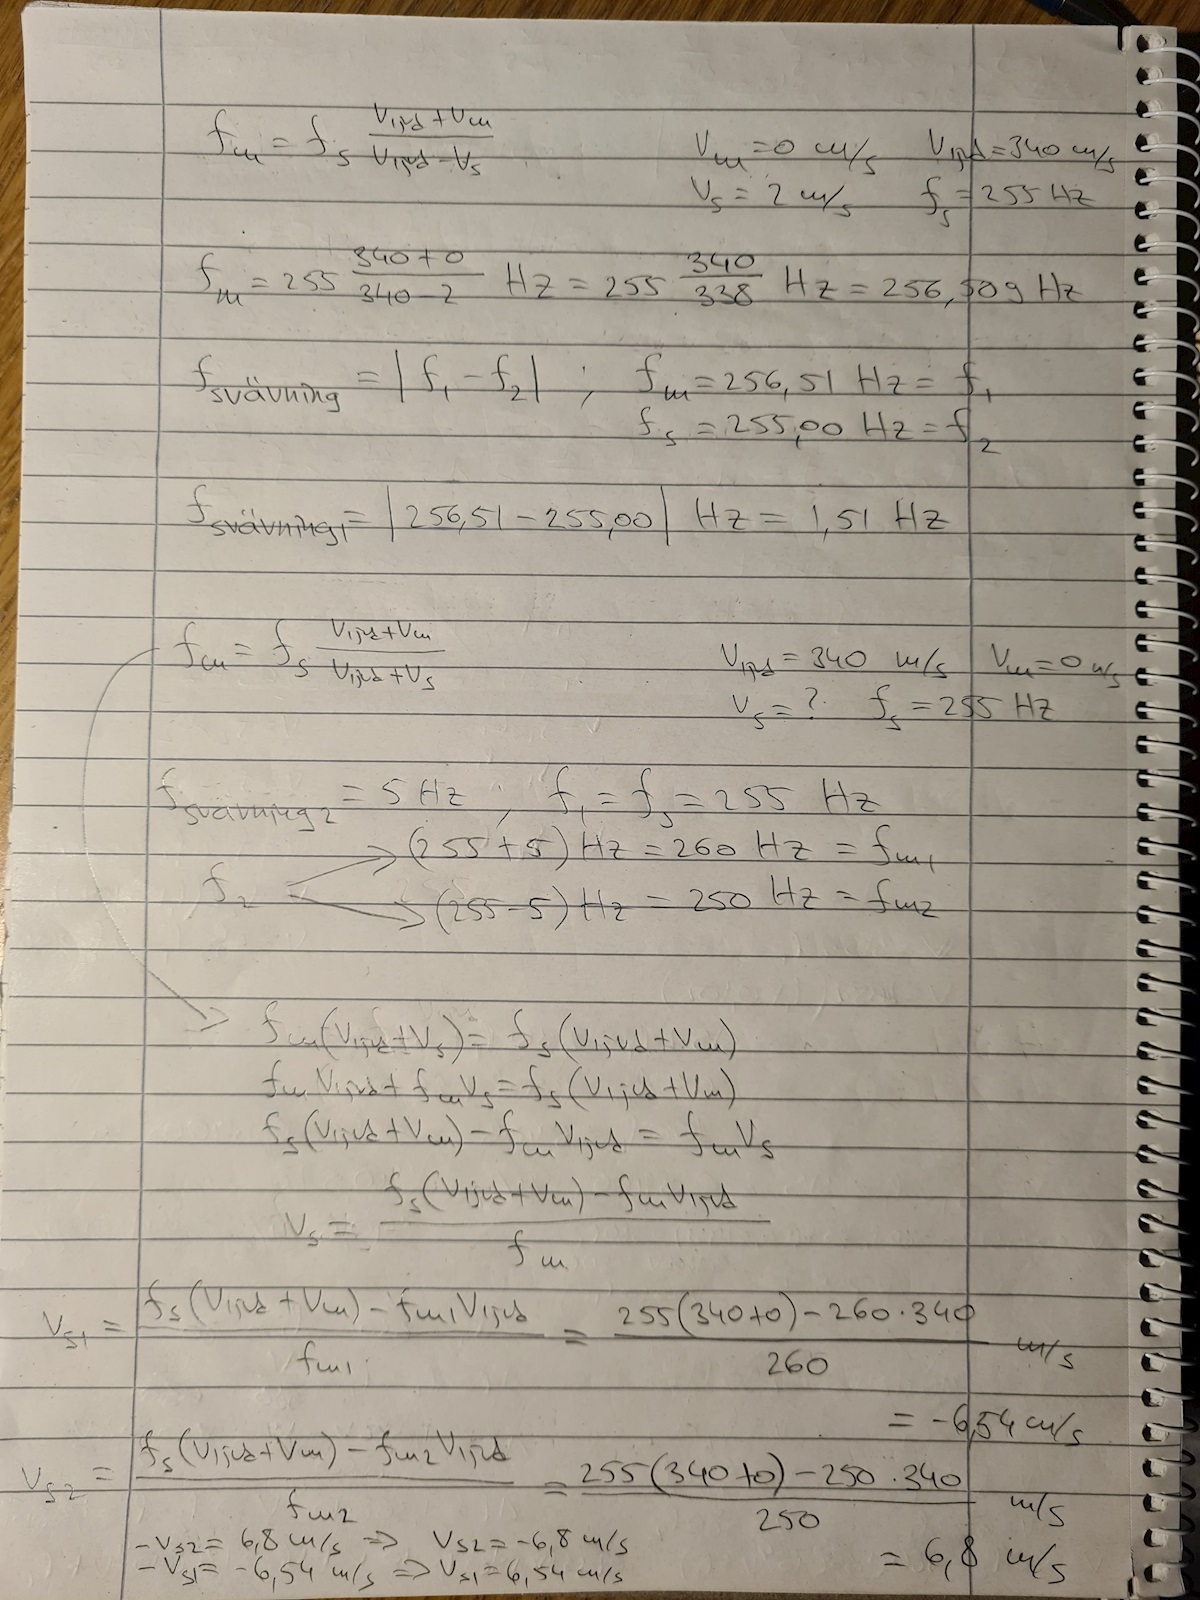 f_m = f_s (v_ljud + v_m)/(v_ljud - v_s)    v_m = 0 m/s    v_ljud = 340 m/s
v_s = 2 m/s    f_s = 255 Hz
f_m = 255 (340+0)/(340-2) Hz = 255 340/338 Hz = 256,509 Hz
f_svävning = |f_1 - f_2| ; f_m = 256,51 Hz = f_1
f_s = 255,00 Hz = f_2
f_svävning1 = |256,51 - 255,00| Hz = 1,51 Hz
f_m = f_s (v_ljud + v_m)/(v_ljud + v_s)    v_ljud = 340 m/s    v_m = 0 m/s
v_s = ?    f_s = 255 Hz
f_svävning2 = 5 Hz ; f_1 = f_s = 255 Hz
(255+5) Hz = 260 Hz = f_m1
f_2
(255-5) Hz = 250 Hz = f_m2
f_m(v_ljud + v_s) = f_s(v_ljud + v_m)
f_m v_ljud + f_m v_s = f_s(v_ljud + v_m)
f_s(v_ljud + v_m) - f_m v_ljud = f_m v_s
v_s = (f_s(v_ljud + v_m) - f_m v_ljud)/f_m
v_s1 = (f_s(v_ljud + v_m) - f_m1 v_ljud)/f_m1 = (255(340+0) - 260·340)/260 m/s
= -6,54 m/s
v_s2 = (f_s(v_ljud + v_m) - f_m2 v_ljud)/f_m2 = (255(340+0) - 250·340)/250 m/s
= 6,8 m/s
-v_s2 = 6,8 m/s => v_s2 = -6,8 m/s
-v_s1 = -6,54 m/s => v_s1 = 6,54 m/s